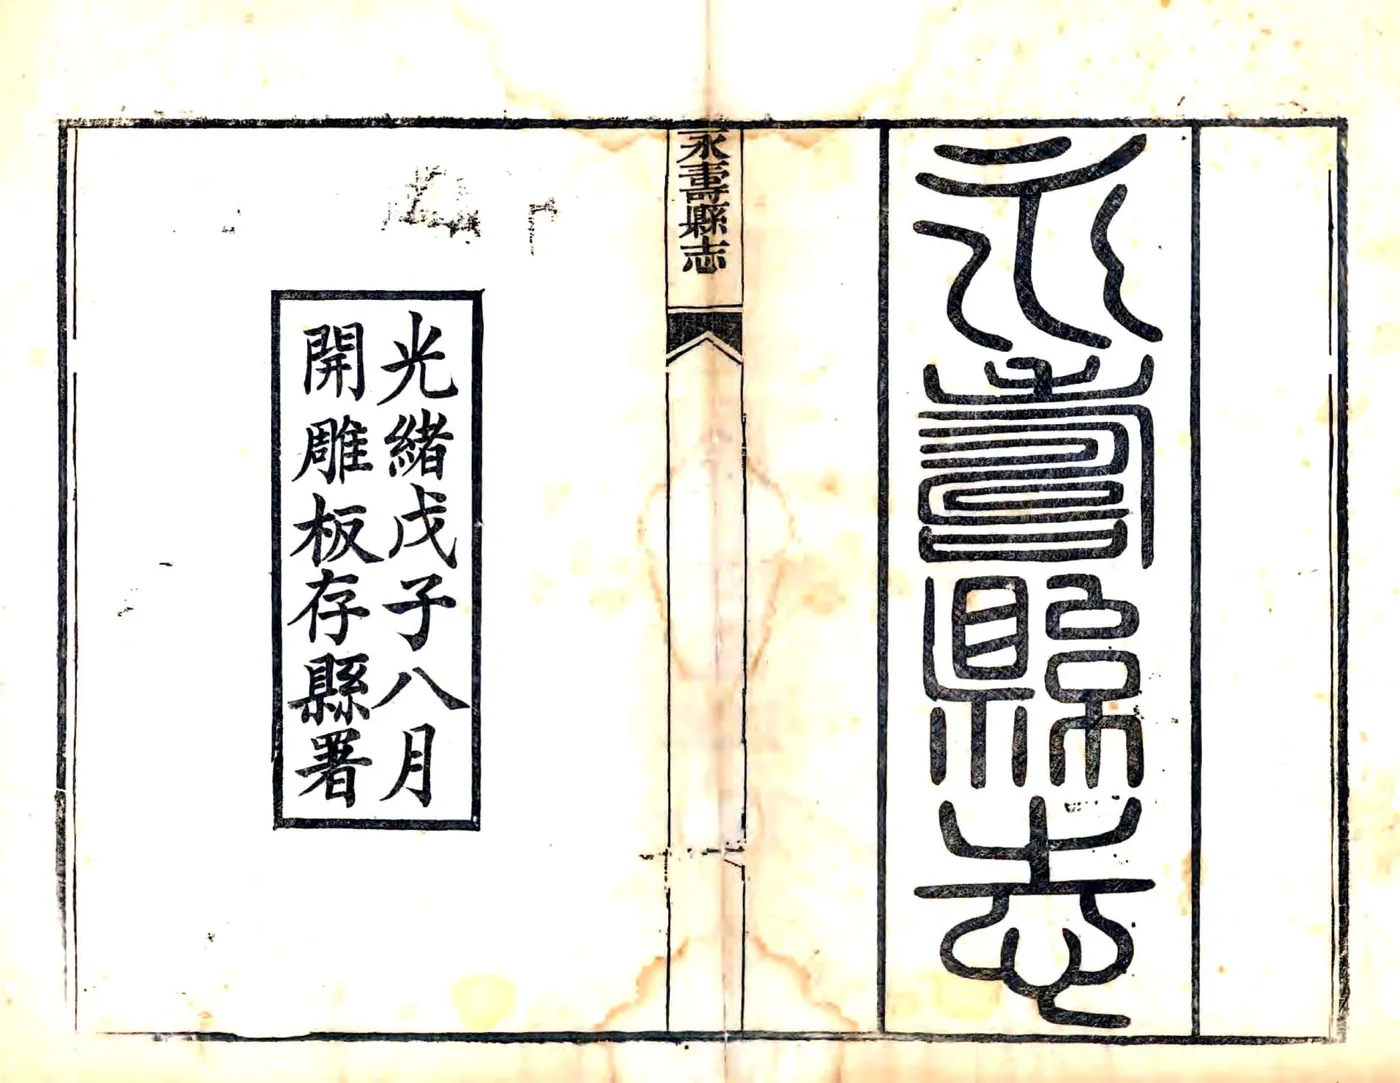 永壽縣志
永壽縣志
光緒戊子八月
開雕板存縣署